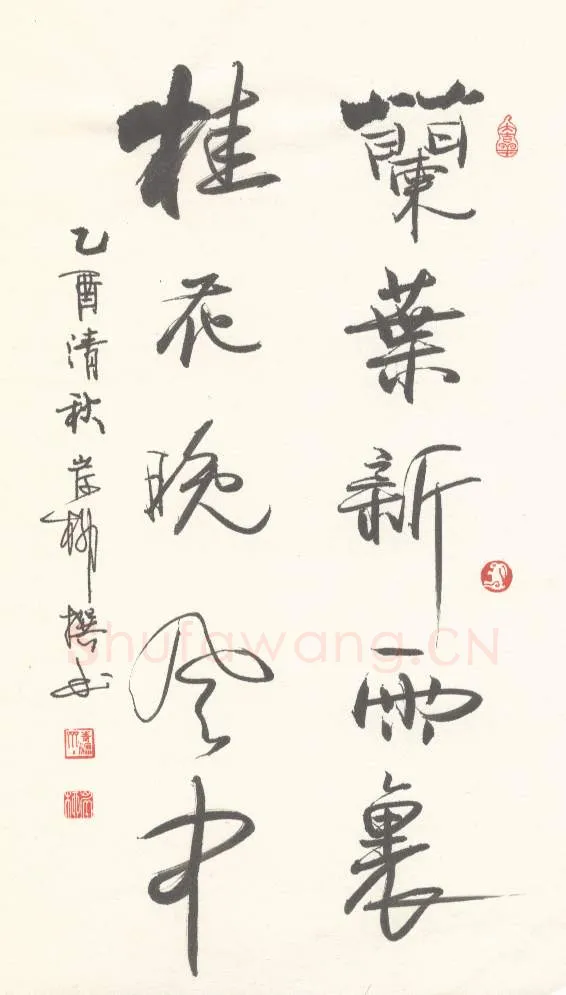 蘭葉新雨裏
桂花晚风中
乙酉清秋岸柳撰书
Shufawang.CN